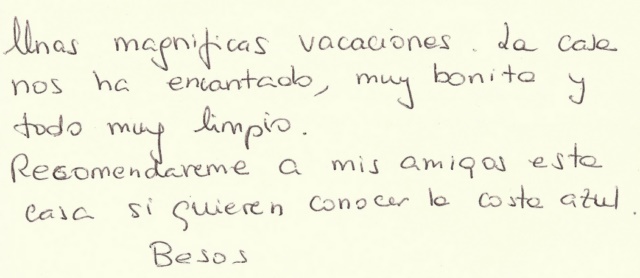 Unas magnificas vacaciones. La casa
nos ha encantado, muy bonita y
todo muy limpio.
Recomendareme a mis amigos esta
casa si quieren conocer la costa azul.
Besos